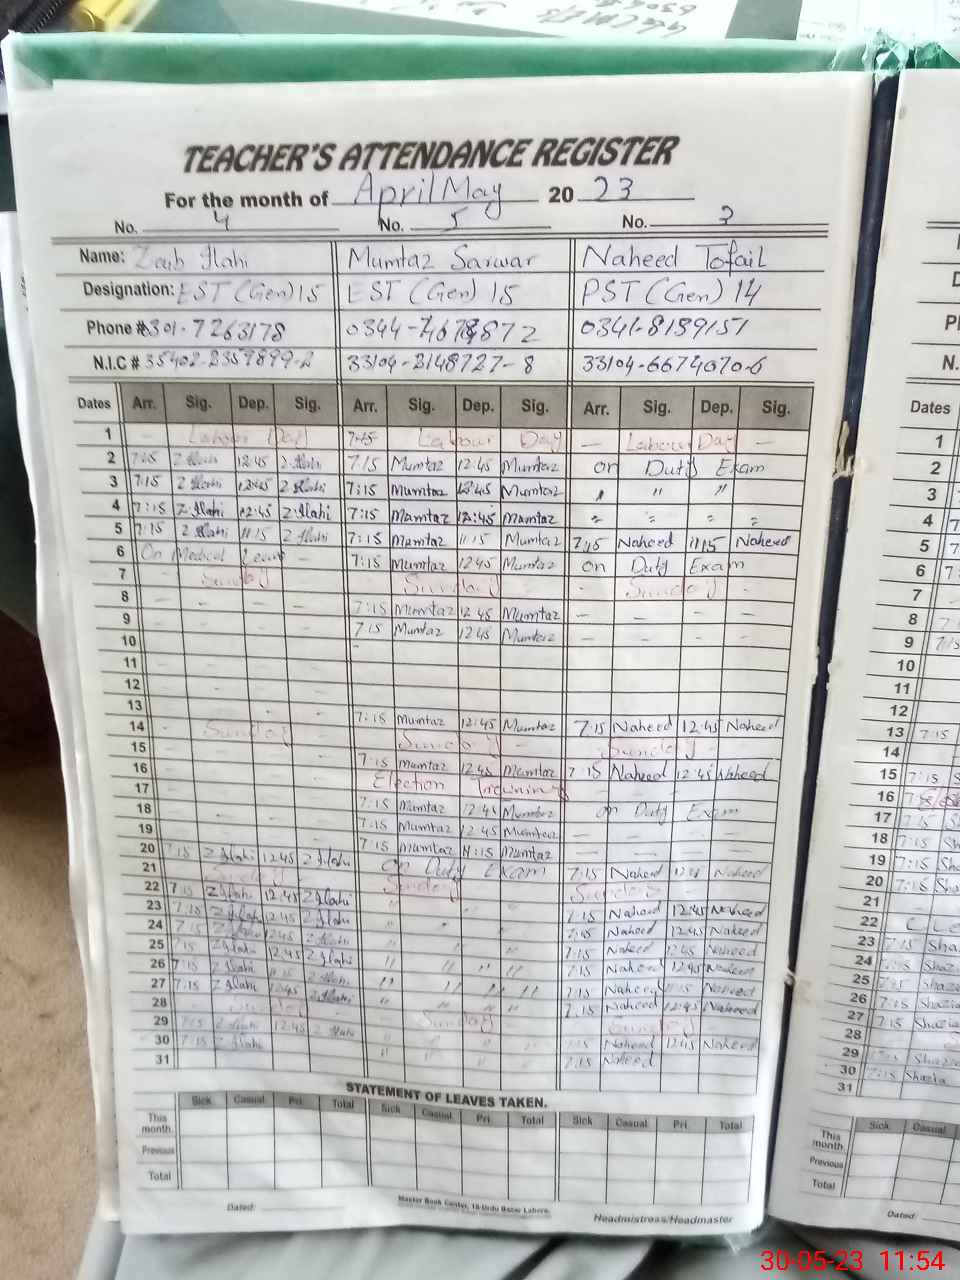 TEACHER'S ATTENDANCE REGISTER
For the month of April May 20 23
No. 4 No. 5 No. 3
Name: Zaib Ilahi Mumtaz Sarwar Naheed Tofail
Designation: EST (Gen) 15 EST (Gen) 15 PST (Gen) 14
Phone # 0344- 0341-8139151
N.I.C # 33104-
Dates Arr. Sig. Dep. Sig. Arr. Sig. Dep. Sig. Arr. Sig. Dep. Sig. Dates
1 Labour Day 7:15 Labour Day Labour Day 1
2 7:15 Z Ilahi 12:45 Z Ilahi 7:15 Mumtaz 12:45 Mumtaz on Duty Exam 2
3 7:15 Z Ilahi 12:45 Z Ilahi 7:15 Mumtaz 12:45 Mumtaz " " 3
4 7:15 Z Ilahi 12:45 Z Ilahi 7:15 Mumtaz 12:45 Mumtaz " " " " 4
5 7:15 Z Ilahi 11:15 Z Ilahi 7:15 Mumtaz 11:15 Mumtaz 7:15 Naheed 11:15 Naheed 5
6 On Medical Leave 7:15 Mumtaz 12:45 Mumtaz on Duty Exam 6
7 Sunday Sunday Sunday 7
8 7:15 Mumtaz 12:45 Mumtaz 8
9 7:15 Mumtaz 12:45 Mumtaz 9 7:15
10 10
11 11
12 12
13 7:15 Mumtaz 12:45 Mumtaz 7:15 Naheed 12:45 Naheed 13 7:15
14 Sunday Sunday Sunday 14
15 7:15 Mumtaz 12:45 Mumtaz 7:15 Naheed 12:45 Naheed 15 7:15
16 Election Training 16
17 7:15 Mumtaz 12:45 Mumtaz on Duty Exam 17 7:15
18 7:15 Mumtaz 12:45 Mumtaz 18 7:15
19 7:15 Mumtaz 11:15 Mumtaz 19 7:15
20 7:15 Z Ilahi 12:45 Z Ilahi on Duty Exam 7:15 Naheed Naheed 20 7:15
21 Sunday Sunday Sunday 21
22 7:15 Z Ilahi 12:45 Z Ilahi " 7:15 Naheed 12:45 Naheed 22
23 7:15 Z Ilahi 12:45 Z Ilahi " 7:15 Naheed 12:45 Naheed 23 7:15
24 7:15 Z Ilahi 12:45 Z Ilahi " 7:15 Naheed 12:45 Naheed 24 7:15
25 7:15 Z Ilahi 12:45 Z Ilahi " " " " 7:15 Naheed 12:45 Naheed 25 7:15
26 7:15 Z Ilahi Z Ilahi " " " " 7:15 Naheed 11:15 Naheed 26 7:15
27 7:15 Z Ilahi 12:45 Z Ilahi " " " " 7:15 Naheed 12:45 Naheed 27 7:15
28 Sunday Sunday Sunday 28
29 7:15 Z Ilahi 12:45 Z Ilahi " " " " 7:15 Naheed 12:45 Naheed 29 7:15
30 7:15 Z Ilahi " " " " 7:15 Naheed 30 7:15 Shazia
31 31
STATEMENT OF LEAVES TAKEN.
Sick Casual Pri. Total Sick Casual Pri. Total Sick Casual Pri. Total Sick Casual
This month This month
Previous Previous
Total Total
Dated: Master Book Center, 18-Urdu Bazar Lahore. Headmistress/Headmaster Dated:
30-05-23 11:54